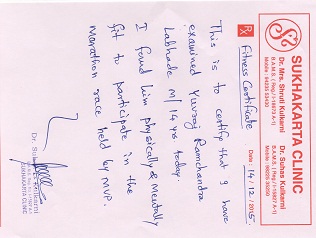 SUKHAKARTA CLINIC
Dr. Mrs. Shruti Kulkarni
B.A.M.S.
Dr. Suhas Kulkarni
B.A.M.S.
Date : 14/12/2015.
Fitness Certificate
This is to certify that I have
examined Yuvraj Ramchandra
Labhade M/14 yrs today.
I found him physically & mentally
fit to participate in the
Marathon race held by MVP.
Dr. Suhas Kulkarni
SUKHAKARTA CLINIC